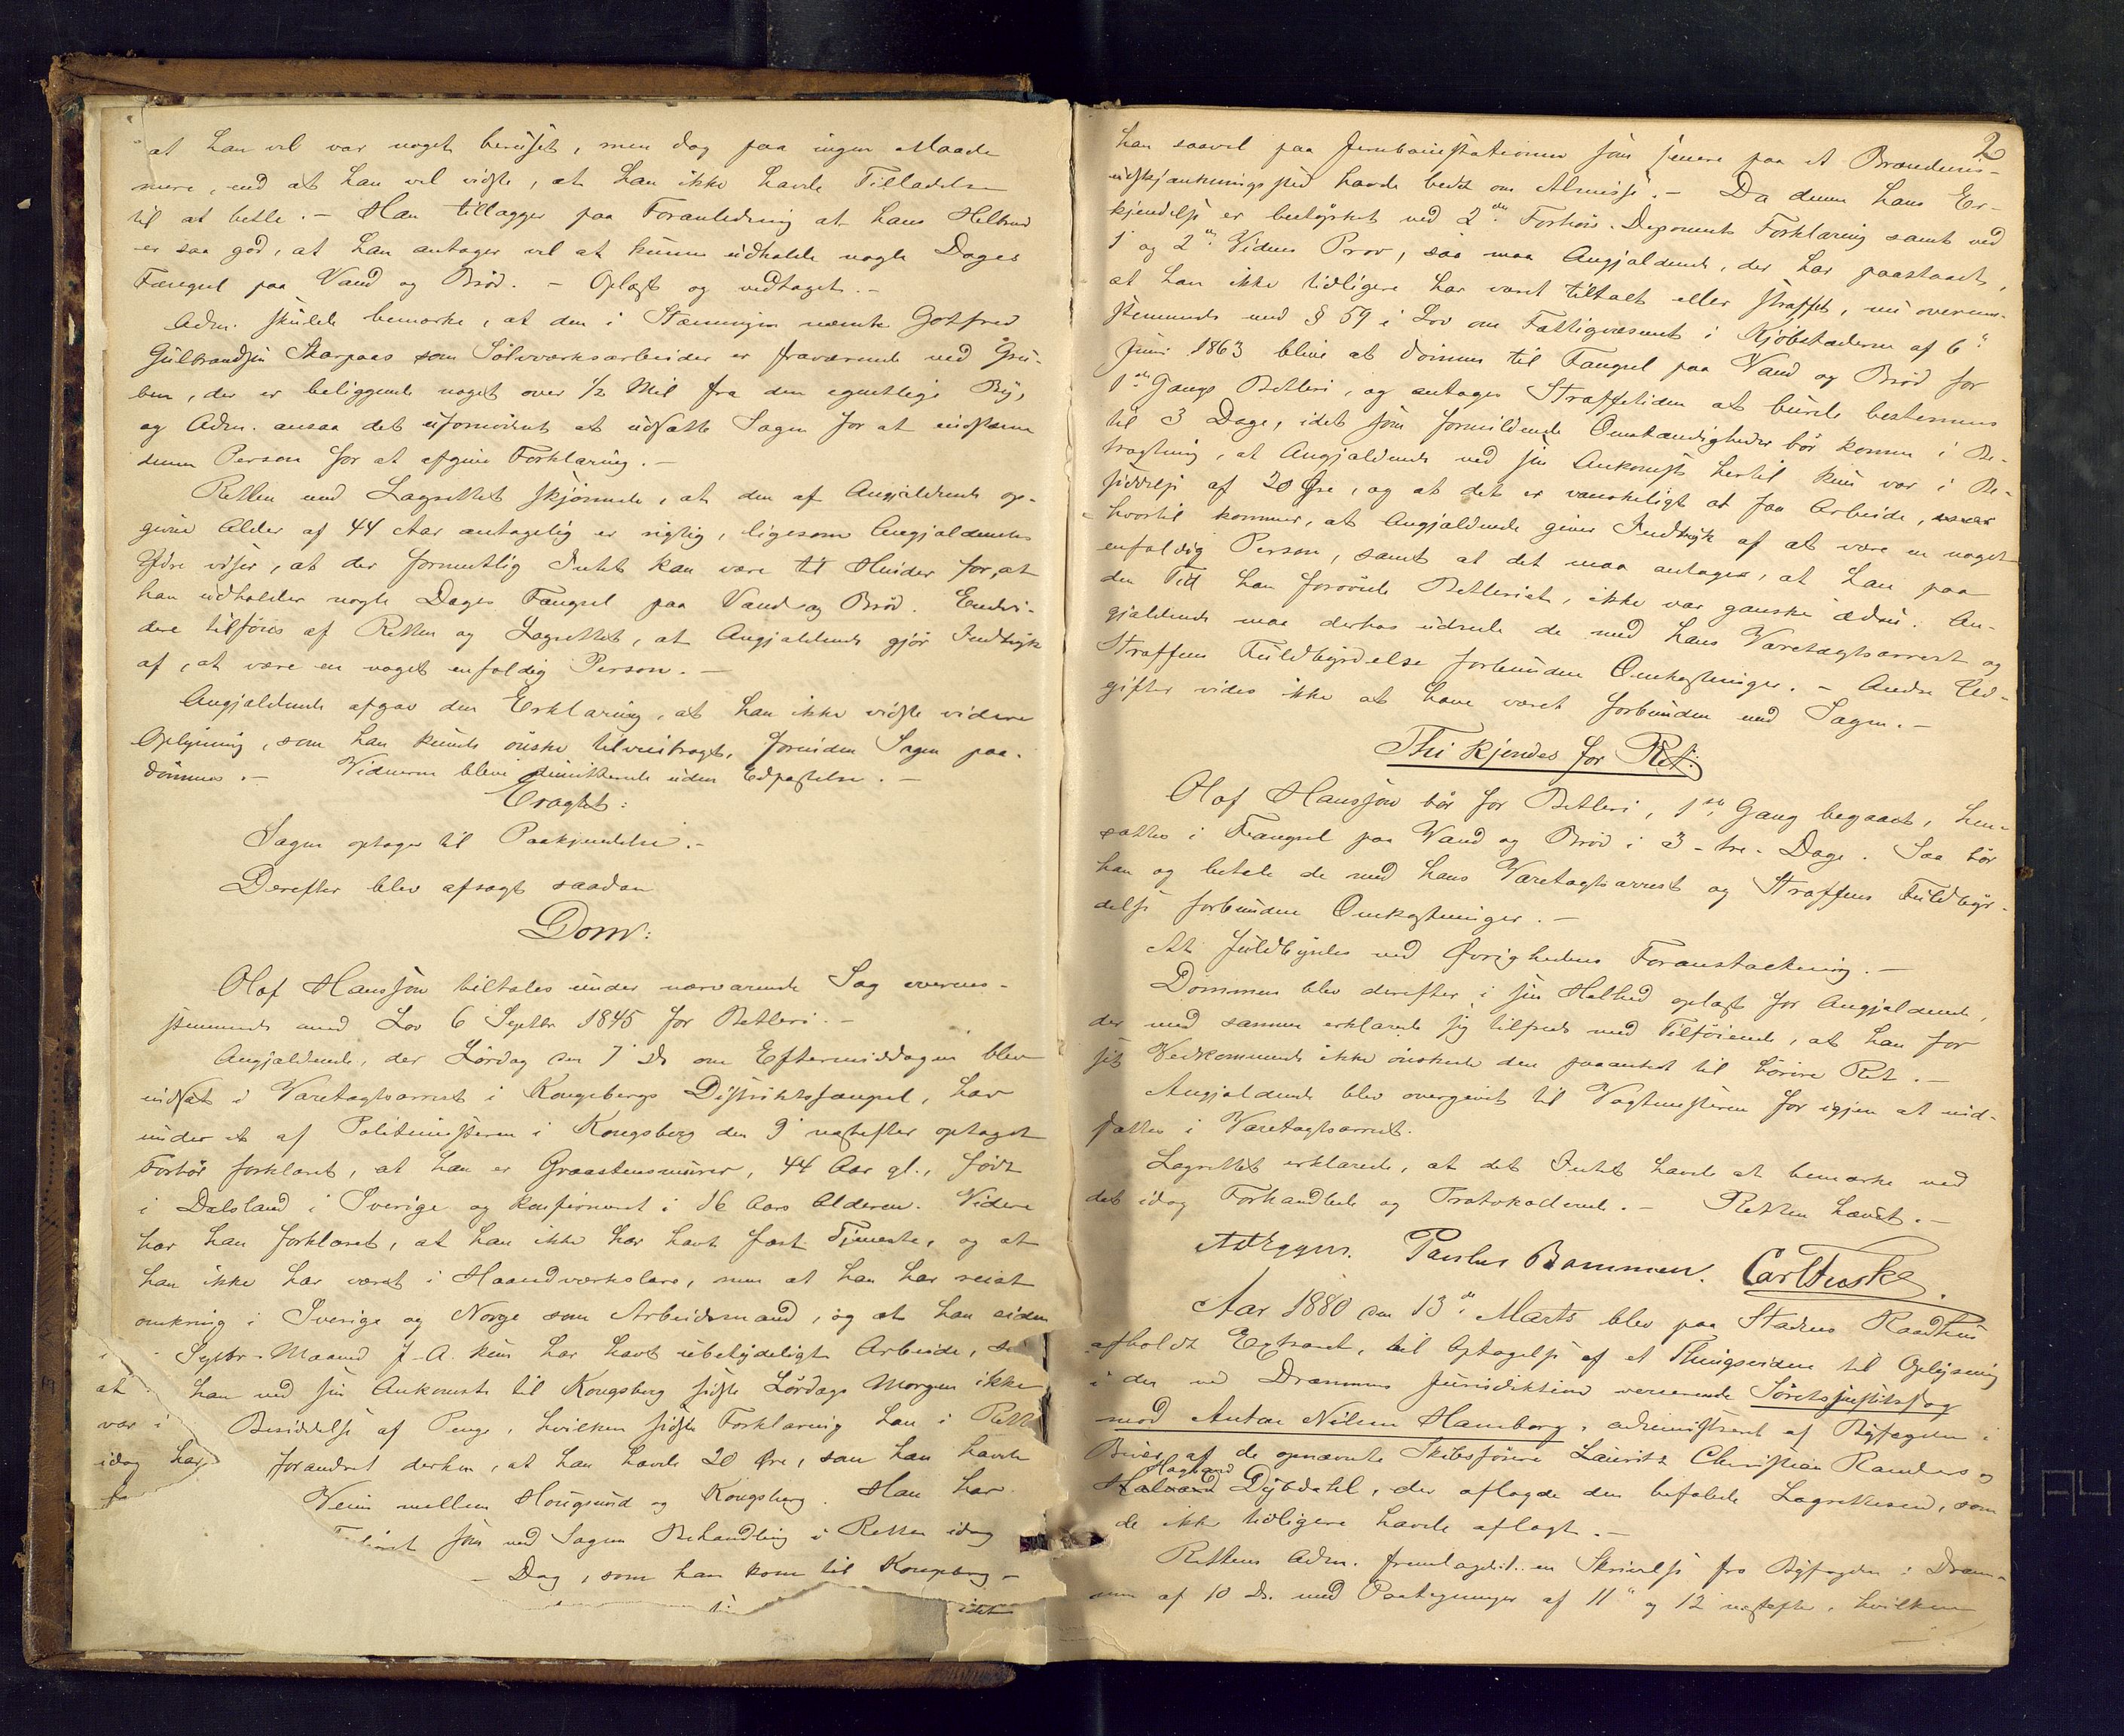 at han vel var noget beruset, men dog paa ingen Maade
mere, end at han vel vidste, at han ikke havde Tilladelse
til at betle. – Han tillægger paa Foranledning at hans Helbred
er saa god, at han antager vel at kunne udholde nogle Dages
Fængsel paa Vand og Brød. – Oplæst og vedtaget. –
Adm. skulde bemærke, at den i Stævningen nævnte Gotfred
Gulbrandsen Skarpaas som Sølvværksarbeider er fraværende ved Gru-
ben, der er beliggende noget over 1/2 Mil fra den egentlige By,
og Adm. ansaa det ufornødent at udsætte Sagen for at indstævne
denne Person for at afgive Forklaring. –
Retten med Lagrettet skjønnede, at den af Angjældende op-
givne Alder af 44 Aar antagelig er rigtig, ligesom Angjældendes
Ydre viser, at der formentlig Intet kan være til Hinder for, at
han udholder nogle Dages Fængsel paa Vand og Brød. Endvi-
dere tilføres af Retten og Lagrettet, at Angjældende gjør Indtryk
af, at være en noget enfoldig Person. –
Angjældende afgav den Erklæring, at han ikke vidste videre
Oplysning, som han kunde ønske tilveiebragt, forinden Sagen paa-
dømmes. – Vidnerne bleve dimitterede uden Edfæstelse. –
Eragtet:
Sagen optages til Paakjendelse. –
Derefter blev afsagt saadan
Dom:
Olaf Hansson tiltales under nærværende Sag overens-
stemmende med Lov 6 Septbr 1845 for Betleri. –
Angjældende, der Lørdag den 7 Ds om Eftermiddagen blev
indsat i Varetægtsarrest i Kongsbergs Distriktsfængsel, har
under et af Politimesteren i Kongsberg den 9' næstefter optaget
Forhør forklaret, at han er Graastensmurer, 44 Aar gl., født
i Dalsland i Sverige og konfirmeret i 16 Aars Alderen. Videre
har han forklaret, at han ikke har havt fast Tjeneste, og at
han ikke har været i Haandværkslære, men at han har reist
omkring i Sverige og Norge som Arbeidsmand, og at han siden
Septbr. Maaned f. A. kun har havt ubetydeligt Arbeide,
at han ved sin Ankomst til Kongsberg sidste Lørdags Morgen ikke
var i Besiddelse af Penge, hvilken sidste Forklaring han i Rett
idag har forandret derhen, at han havde 20 Øre, som han havde
Veien mellem Hougsund og Kongsberg. Han har
som ved Sagens Behandling i Retten idag
Dag, som han kom til Kongsberg –
idet
2
han saavel paa Jernbanestationen som senere paa et Brændevins-
udskjænkningssted havde bedet om Almisse. – Da denne hans Er-
kjendelse er bestyrket ved 2den Forhørs-Deponents Forklaring samt ved
1 og 2' Vidnes Prov, saa maa Angjældende, der har paastaaet,
at han ikke tidligere har været tiltalt eller straffet, nu overens-
stemmende med § 59 i Lov om Fattigvæsenet i Kjøbstæderne af 6'
Juni 1863 blive at dømme til Fængsel paa Vand og Brød for
1ste Gangs Betleri, og antages Straffetiden at burde bestemmes
til 3 Dage, idet som formildende Omstændigheder bør komme i Be-
tragtning, at Angjældende ved sin Ankomst hertil kun var i Be-
siddelse af 20 Øre, og at det er vanskeligt at faa Arbeide,
hvortil kommer, at Angjældende giver Indtryk af at være en noget
enfoldig Person, samt at det maa antages, at han paa
den Tid han forøvede Betleriet, ikke var ganske ædru. An-
gjældende maa derhos udrede de med hans Varetægtsarrest og
Straffens Fuldbyrdelse forbundne Omkostninger. – Andre Ud-
gifter vides ikke at have været forbunden med Sagen. –
Thi kjendes for Ret:
Olaf Hansson bør for Betleri, 1ste Gang begaaet, hen-
sættes i Fængsel paa Vand og Brød i 3 – tre – Dage. Saa bør
han og betale de med hans Varetægtsarrest og Straffens Fuldbyr-
delse forbundne Omkostninger. –
At fuldbyrdes ved Øvrighedens Foranstaltning. –
Dommen blev derefter i sin Helhed oplæst for Angjældende,
der med samme erklærede sig tilfreds med Tilføiende, at han for
sit Vedkommende ikke ønskede den paaanket til høiere Ret. –
Angjældende blev overgivet til Vagtmesteren for igjen at ind-
sættes i Varetægtsarrest.
Lagrettet erklærede, at det Intet havde at bemærke ved
det idag Forhandlede og Protokollerede. – Retten hævet. –
Paulus Bommen. Carl Fuske.
Aar 1880 den 13de Marts blev paa Stadens Raadhus
afholdt Extraret, til Optagelse af et Thingsvidne til Oplysning
i den ved Drammens Jurisdiktion verserende Søretsjustitssag
mod Anton Nilsen Hamborg, administreret af Byfogden i
af de opnævnte Skibsførere Lauritz Christian Randers og
Haavard Dybdahl, der aflagde den befalede Lagretteseed, som
de ikke tidligere havde aflagt. –
Rettens Adm. fremlagde 1. en Skrivelse fra Byfogden i Dram-
men af 10 Ds. med Paategninger af 11' og 12 næstefter, hvilken